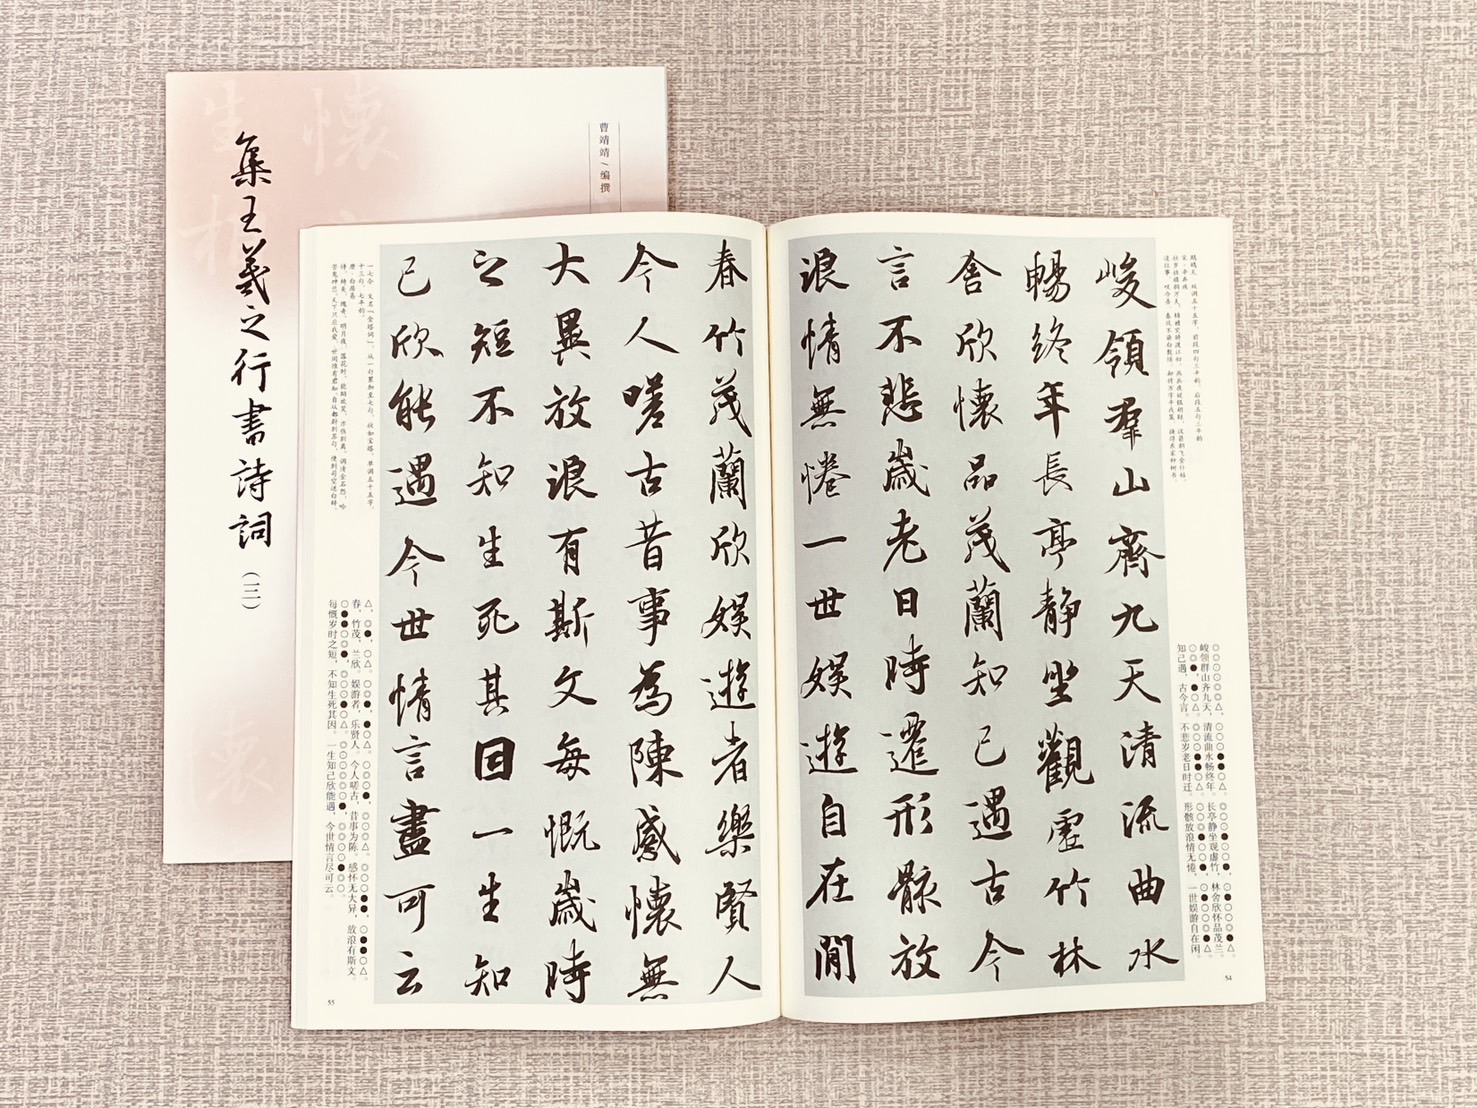 集王羲之行書詩詞(三)
曹靖靖/编撰
峻領羣山齊九天清流曲水
暢終年長亭静坐觀虚竹林
舍欣懷品茂蘭知己遇古今
言不悲歲老日時遷形骸放
浪情無惓一世娱遊自在閒
春竹茂蘭欣娱遊者樂賢人
今人嗟古昔事為陳感懷無
大異放浪有斯文每慨歲時
之短不知生死其因一生知
已欣能遇今世情言盡可云
峻领群山齐九天，清流曲水畅终年。长亭静坐观虚竹，林舍欣怀品茂兰。
知己遇，古今言。不悲岁老日时迁。形骸放浪情无惓，一世娱游自在闲。
54
春，竹茂，兰欣。娱游者，乐贤人。今人嗟古，昔事为陈。感怀无大异，放浪有斯文。
每慨岁时之短，不知生死其因。一生知己欣能遇，今世情言尽可云。
55